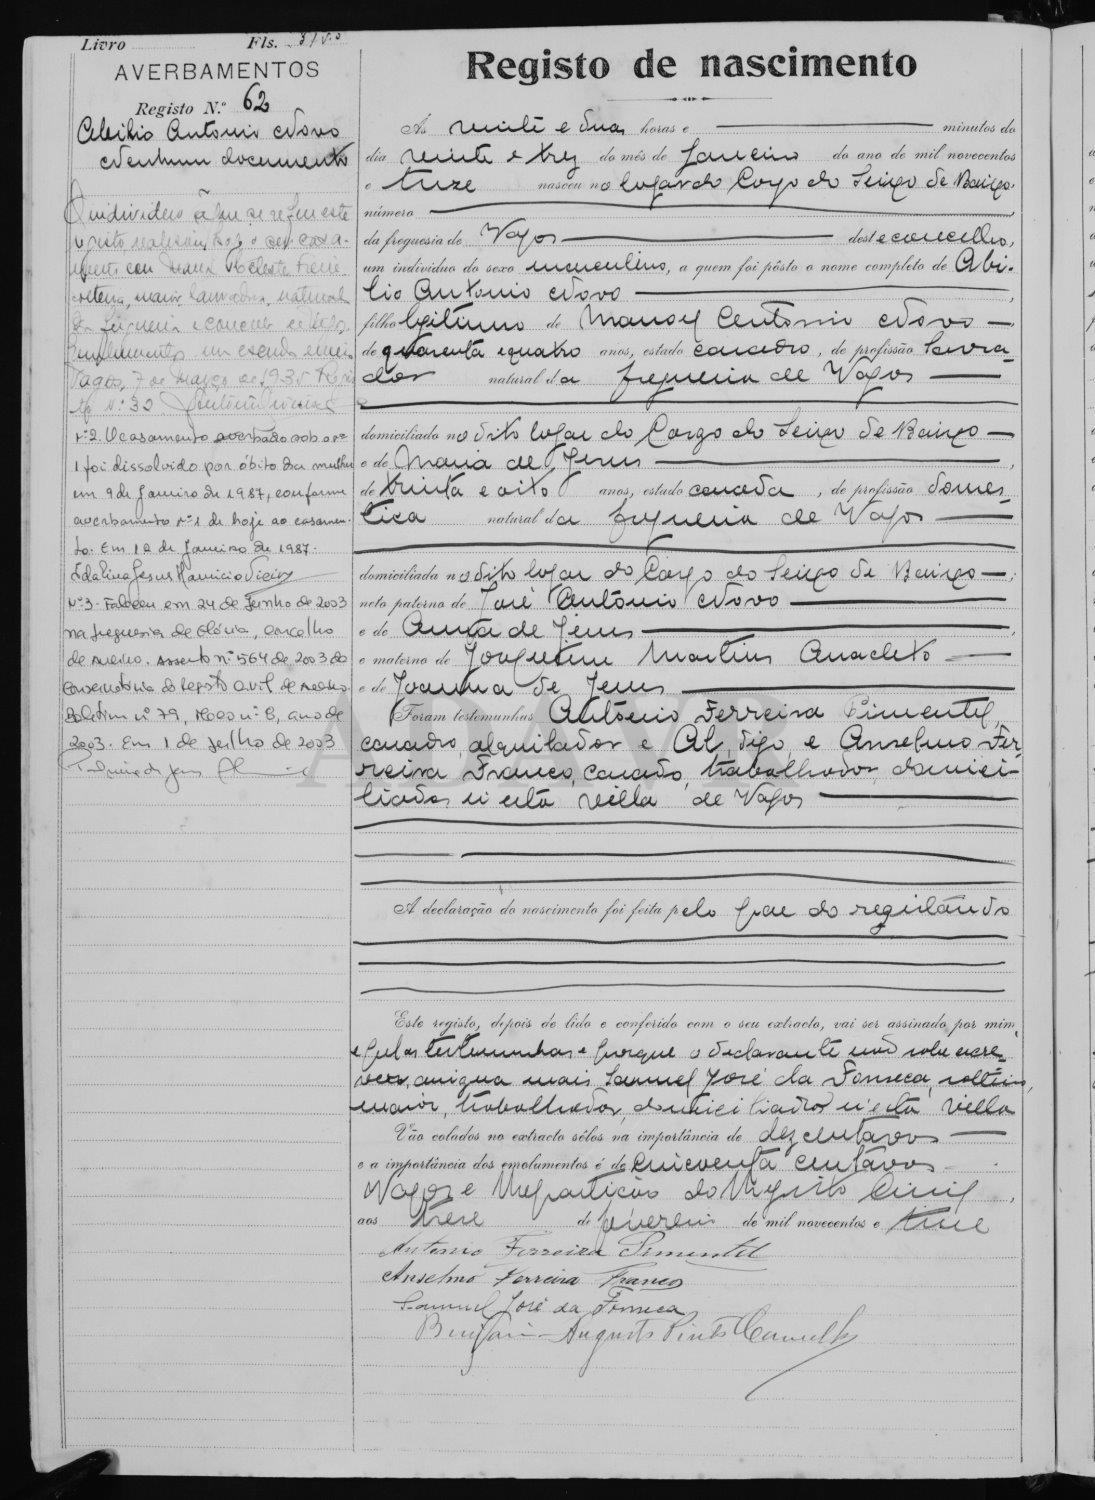 Livro Fls. 31 v.o
AVERBAMENTOS
Registo N.º 62
Abilio Antonio Novo
Nenhum documento
O individuo a que se refere este
registo realisou hoje o seu casa-
mento com Maria Celeste
maior, lavradora, natural
da freguesia e concelho de Vagos.
Vagos, 7 de Março de 193
Nº 30
Nº 2. O casamento averbado sob o nº
1 foi dissolvido por óbito da mulher
em 9 de Janeiro de 1987, conforme
averbamento nº 1 de hoje ao casamen-
to. Em 12 de Janeiro de 1987.
Idalina Jesus Mauricio Vieira
Nº 3. Faleceu em 24 de Junho de 2003
na freguesia de Glória, concelho
de Aveiro. Assento nº 564 de 2003 da
Conservatória do Registo Civil de Aveiro.
Boletim nº 79, Maço nº 8, ano de
2003. Em 1 de Julho de 2003
Registo de nascimento
Ás vinte e duas horas e minutos do
dia vinte e trez do mês de Janeiro do ano de mil novecentos
e treze nasceu no logar do Corgo do Seixo de Baixo
número
da freguesia de Vagos deste concelho,
um individuo do sexo masculino, a quem foi pôsto o nome completo de Abi-
lio Antonio Novo
filho legitimo de Manoel Antonio Novo
de quarenta e quatro anos, estado casado, de profissão lavra-
dor natural da freguesia de Vagos
domiciliado no dito logar do Corgo do Seixo de Baixo
e de Maria de Jesus
de trinta e oito anos, estado casada, de profissão domes-
tica natural da freguesia de Vagos
domiciliada no dito logar do Corgo do Seixo de Baixo
neto paterno de José Antonio Novo
e de Anna de Jesus
e materno de Joaquim Martins Anacleto
e de Joanna de Jesus
Foram testemunhas Antonio Ferreira Pimentel,
casado, alquilador e Al, digo, e Anselmo Fer-
reira Franco, casado, trabalhador, domici-
liados n'esta villa de Vagos
A declaração do nascimento foi feita pelo pae do registando
Este registo, depois de lido e conferido com o seu extracto, vai ser assinado por mim,
e pelas testemunhas e porque o declarante não sabe escre-
ver, assigna mais Samuel José da Fonseca, solteiro,
maior, trabalhador, domiciliado n'esta villa
Vão colados no extracto sêlos na importância de dez centavos
e a importância dos emolumentos é de cincoenta centavos
Vagos e Repartição do Registo Civil,
aos treze de fevereiro de mil novecentos e treze
Antonio Ferreira Pimentel
Anselmo Ferreira Franco
Samuel José da Fonseca
Augusto Pinto
ADAVR